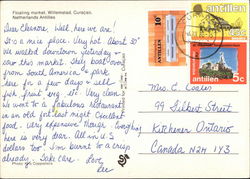 Floating market, Willemstad, Curaçao,
Netherlands Antilles
Dear Eleanore, Well, here we are.
It's a nice place. Very hot. About 80°
We visited downtown yesterday &
saw this market. They boat over
from South America & park
here for a few days & sell
fish fruit veg. etc. Very clean.
We went to a fabulous restaurant
in an old fort last night. Excellent
food. Very expensive though. Everything
here is very dear. All in U.S
dollars too. I'm burnt to a crisp
already. Take care. Love,
Photo
10c
antillen
antillen
antillen
5c
Mrs. C. Coales
99 Gilbert Street
Kitchener Ontario
Canada N2M 1Y3